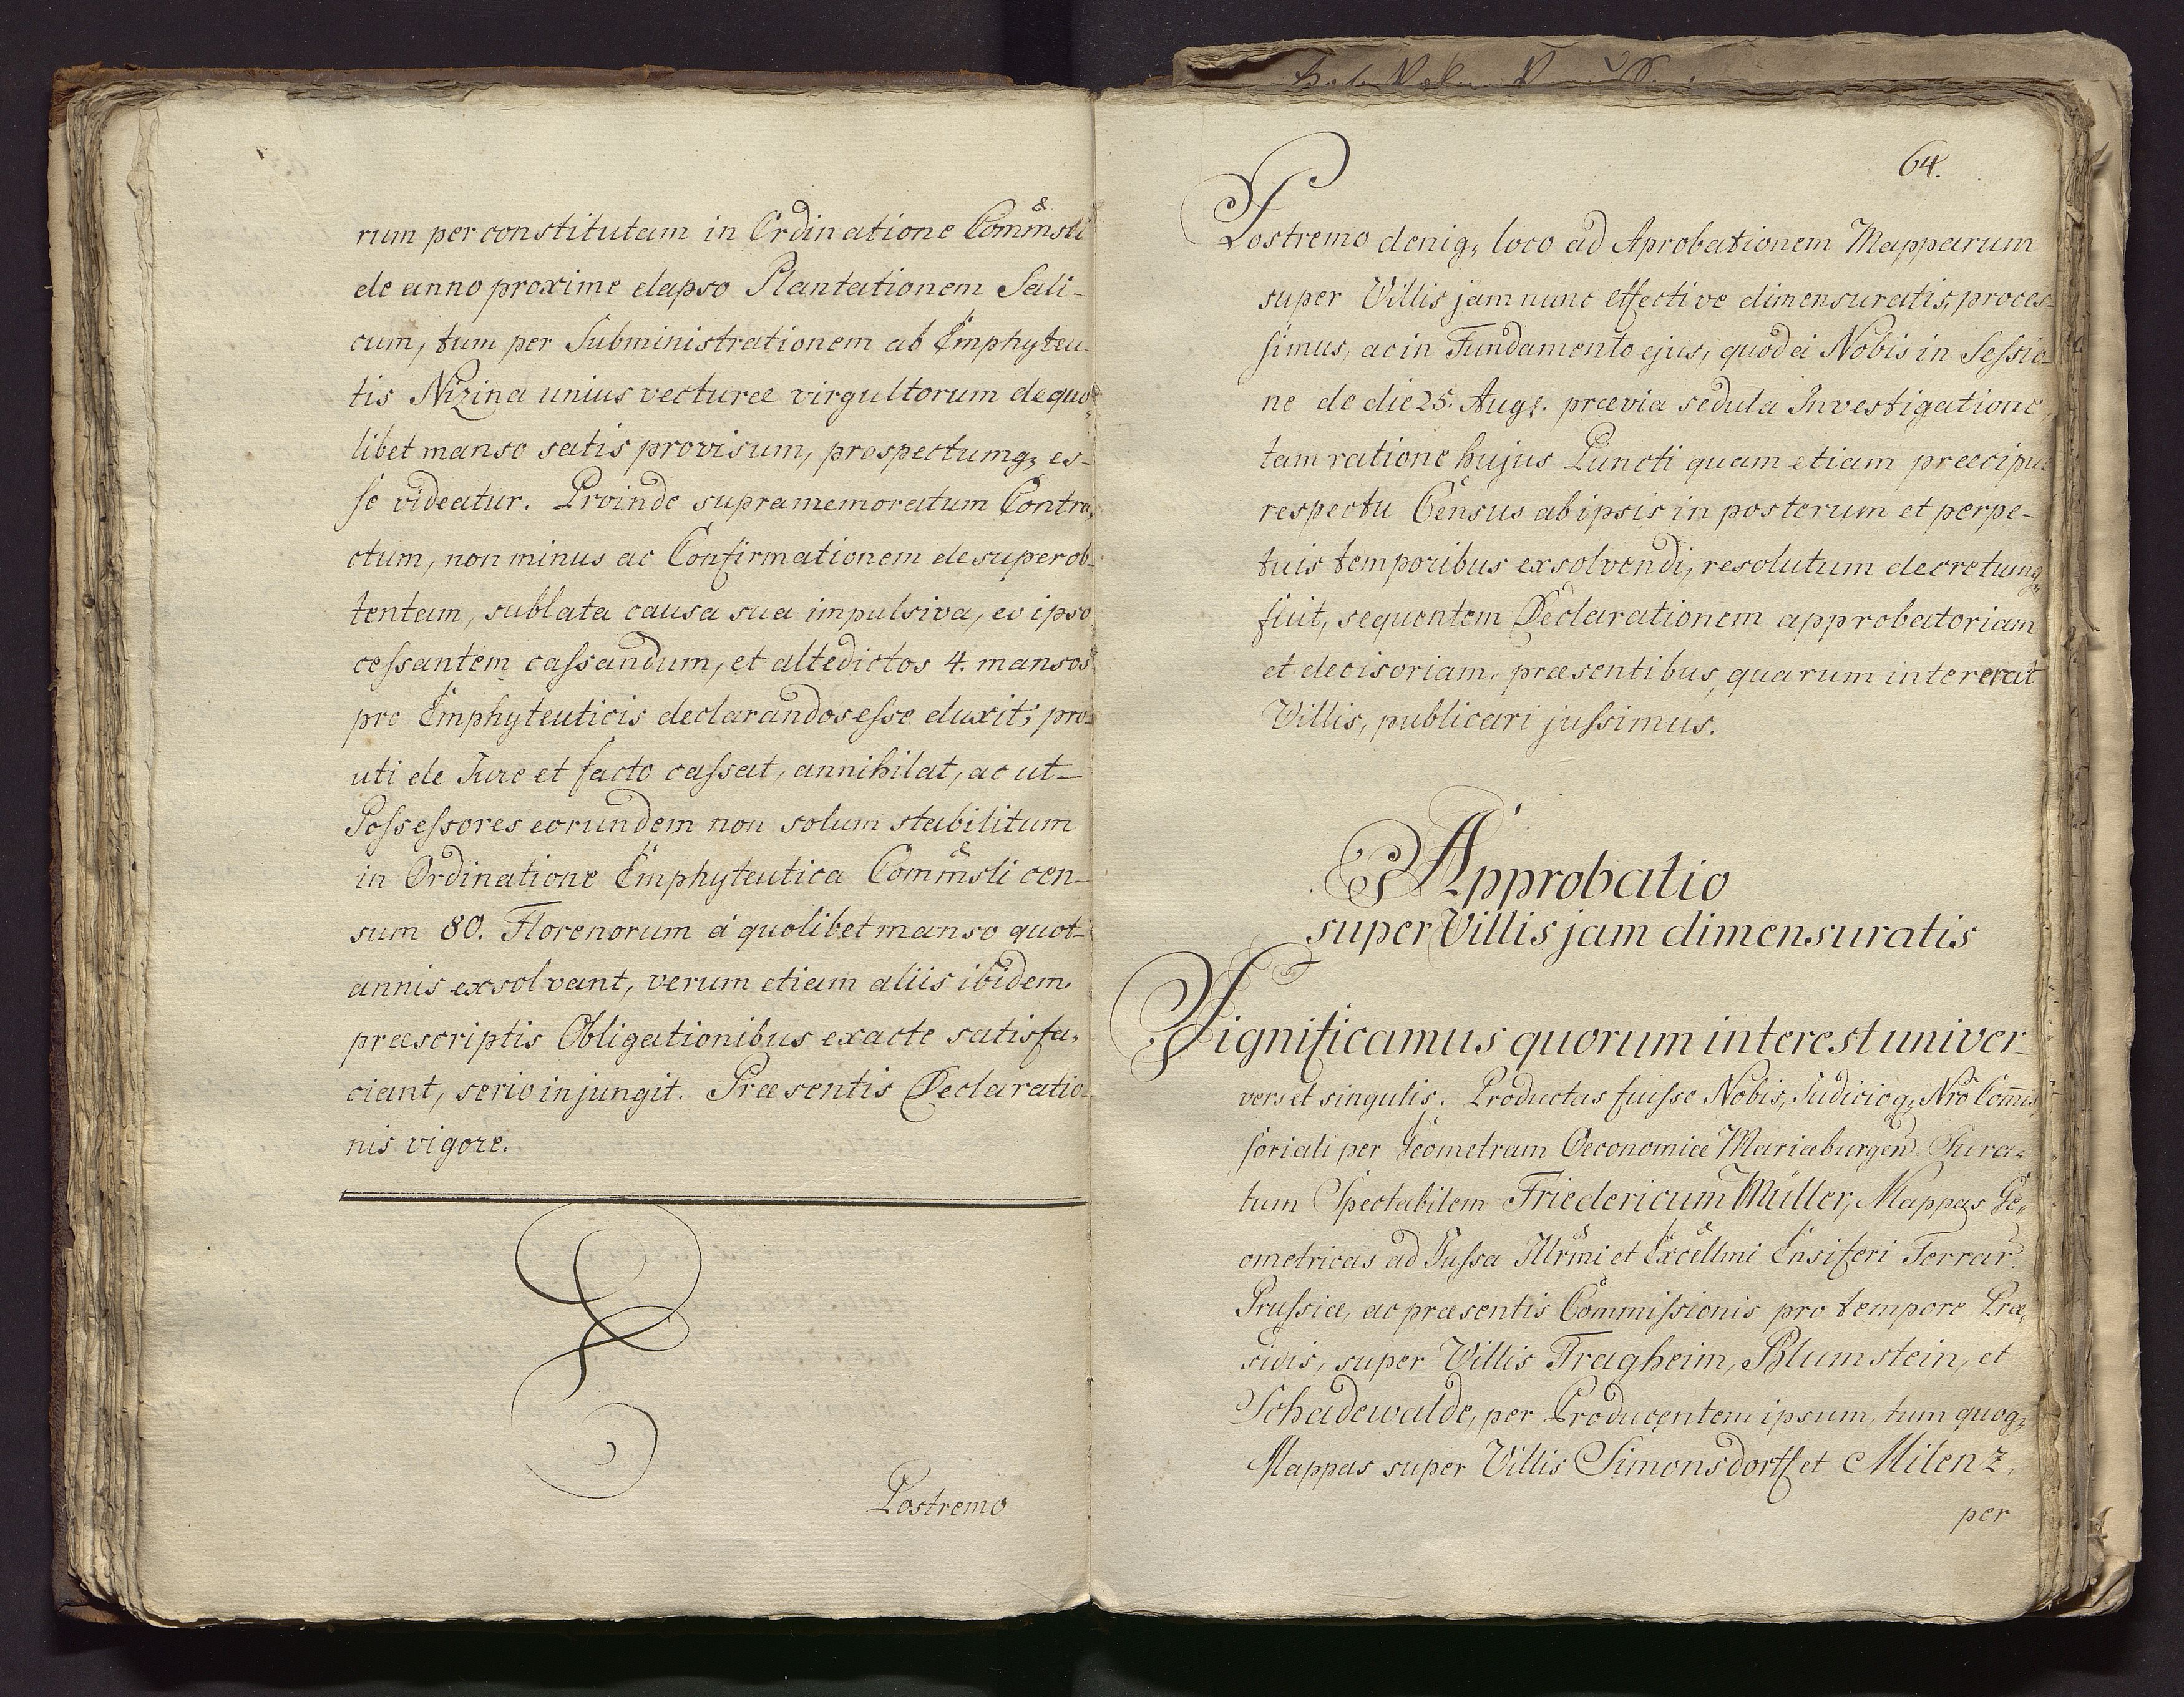 rum per constitutam in Ordinatione Com̃msli
de anno proxime elapso Plantationem Sali-
cum, tum per Subministrationem ab Emphyteu-
tis Nizina unius vecturæ virgultorum de quo-
libet manso satis provisum, prospectumq; es-
se videatur. Proinde supramemoratum Contra-
ctum, non minus ac Confirmationem desuper ob-
tentam, sublata causa sua impulsiva, eo ipso
cessantem cassandum, et altedictos 4. mansos
pro Emphyteuticis declarandos esse duxit; pro-
uti de Jure et facto cassat, annihilat, ac ut
Possessores eorundem non solum stabilitum
in Ordinatione Emphyteutica Com̃msli cen-
sum 80. Florenorum à quolibet manso quot-
annis exsolvant, verum etiam aliis ibidem
præscriptis Obligationibus exacte satisfa-
ciant, serio injungit. Præsentis Declaratio-
nis vigore.
Postremo
64.
Postremo deniq; loco ad Aprobationem Mapparum
super Villis jam nunc effective dimensuratis, proces-
simus, ac in Fundamento ejus, quod a Nobis in Sessio-
ne de die 25. Augs. prævia sedula Investigatione,
tam ratione hujus Puncti quam etiam præcipue
respectu Census ab ipsis in posterum et perpe-
tuis temporibus exsolvendi, resolutum decretumq;
fuit, sequentem Declarationem approbatoriam
et decisoriam, præsentibus, quarum intererat
Villis, publicari jussimus.
Approbatio
super Villis jam dimensuratis
Significamus quorum interest univer-
verset singulis. Productas fuisse Nobis, Judicioq; Nrõ Com̃is
soriali per Geometram Oeconomiæ Mariæburgen Jura-
tum Spectabilem Friedericum Müller, Mappas Ge-
ometricas ad Jussa Illrm̃i et Excellm̃i Ensiferi Terrar.
Prussiæ, ac præsentis Commissionis pro tempore Præ-
sidis, super Villis Tragheim, Blumstein, et
Schadewalde, per Producentem ipsum, tum quoq;
Mappas super Villis Simonsdorff et Milenz,
per